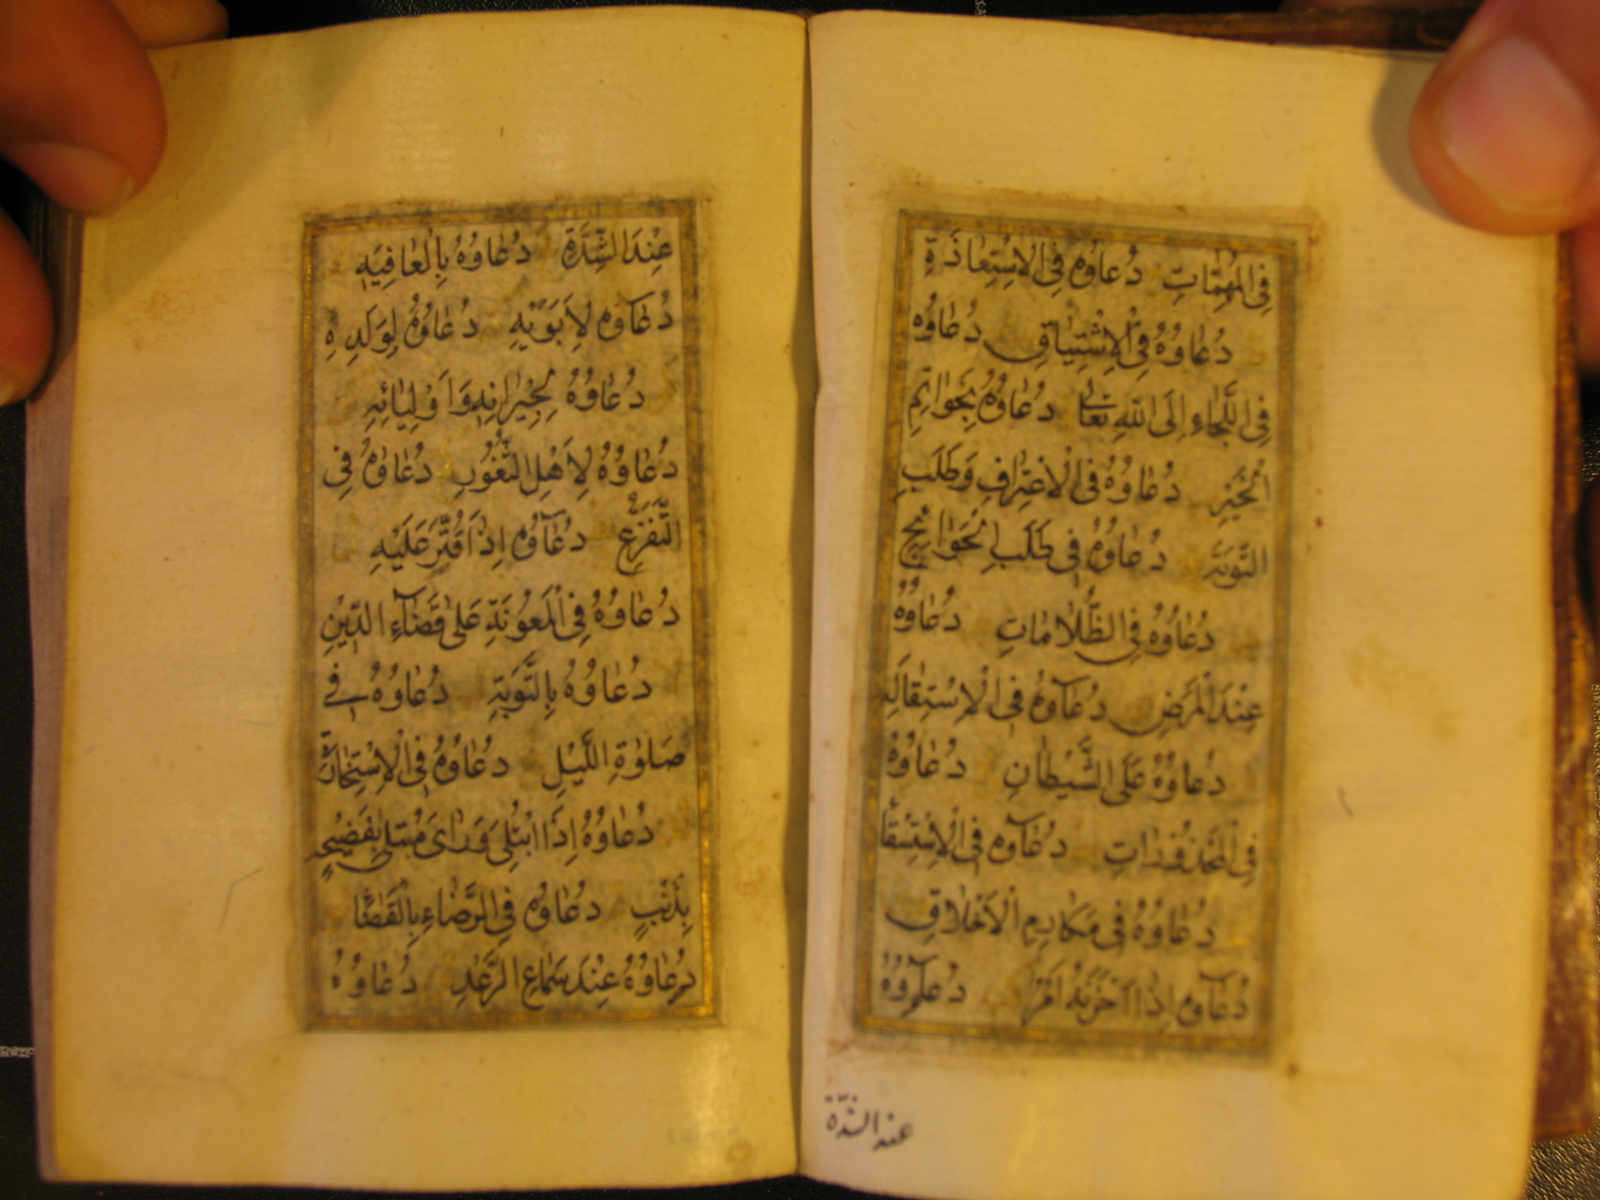 فِي الْمُهِمَّاتِ دُعَاؤُهُ فِي الْاِسْتِعَاذَةِ
دُعَاؤُهُ فِي الْاِشْتِيَاقِ دُعَاؤُهُ
فِي اللَّجَاءِ اِلَى اللهِ تَعَالَى دُعَاؤُهُ بِخَوَاتِمِ
الْخَيْرِ دُعَاؤُهُ فِي الْاِعْتِرَافِ وَطَلَبِ
التَّوْبَةِ دُعَاؤُهُ فِي طَلَبِ الْحَوَائِجِ
دُعَاؤُهُ فِي الظُّلَامَاتِ دُعَاؤُهُ
عِنْدَ الْمَرَضِ دُعَاؤُهُ فِي الْاِسْتِقَالَةِ
دُعَاؤُهُ عَلَى الشَّيْطَانِ دُعَاؤُهُ
فِي الْمَحْذُورَاتِ دُعَاؤُهُ فِي الْاِسْتِسْقَاءِ
دُعَاؤُهُ فِي مَكَارِمِ الْاَخْلَاقِ
دُعَاؤُهُ اِذَا اَحْزَنَهُ اَمْرٌ دُعَاؤُهُ
عند الشدّة
عِنْدَ الشِّدَّةِ دُعَاؤُهُ بِالْعَافِيَةِ
دُعَاؤُهُ لِاَبَوَيْهِ دُعَاؤُهُ لِوَلَدِهِ
دُعَاؤُهُ لِجِيْرَانِهِ وَاَوْلِيَائِهِ
دُعَاؤُهُ لِاَهْلِ الثُّغُورِ دُعَاؤُهُ فِي
التَّفَزُّعِ دُعَاؤُهُ اِذَا قُتِّرَ عَلَيْهِ
دُعَاؤُهُ فِي الْمَعُونَةِ عَلَى قَضَاءِ الدَّيْنِ
دُعَاؤُهُ بِالتَّوْبَةِ دُعَاؤُهُ فِي
صَلٰوةِ اللَّيْلِ دُعَاؤُهُ فِي الْاِسْتِخَارَةِ
دُعَاؤُهُ اِذَا ابْتُلِيَ وَرَاَى مُبْتَلًى بِفَضِيحَةٍ
بِذَنْبٍ دُعَاؤُهُ فِي الرِّضَاءِ بِالْقَضَاءِ
دُعَاؤُهُ عِنْدَ سَمَاعِ الرَّعْدِ دُعَاؤُهُ